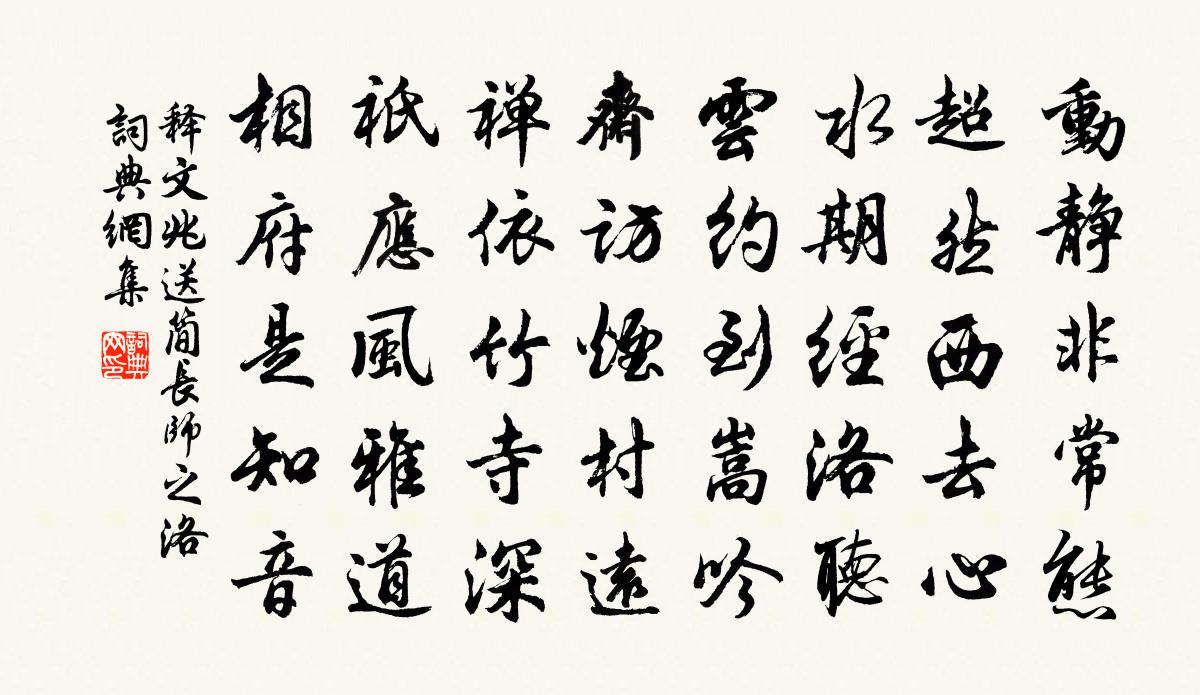 動靜非常態
超然西去心
水期經洛聽
雲約到嵩吟
齋訪煙村遠
禅依竹寺深
祇應風雅道
相府是知音
释文兆送简長師之洛
詞典網集
詞典
网印